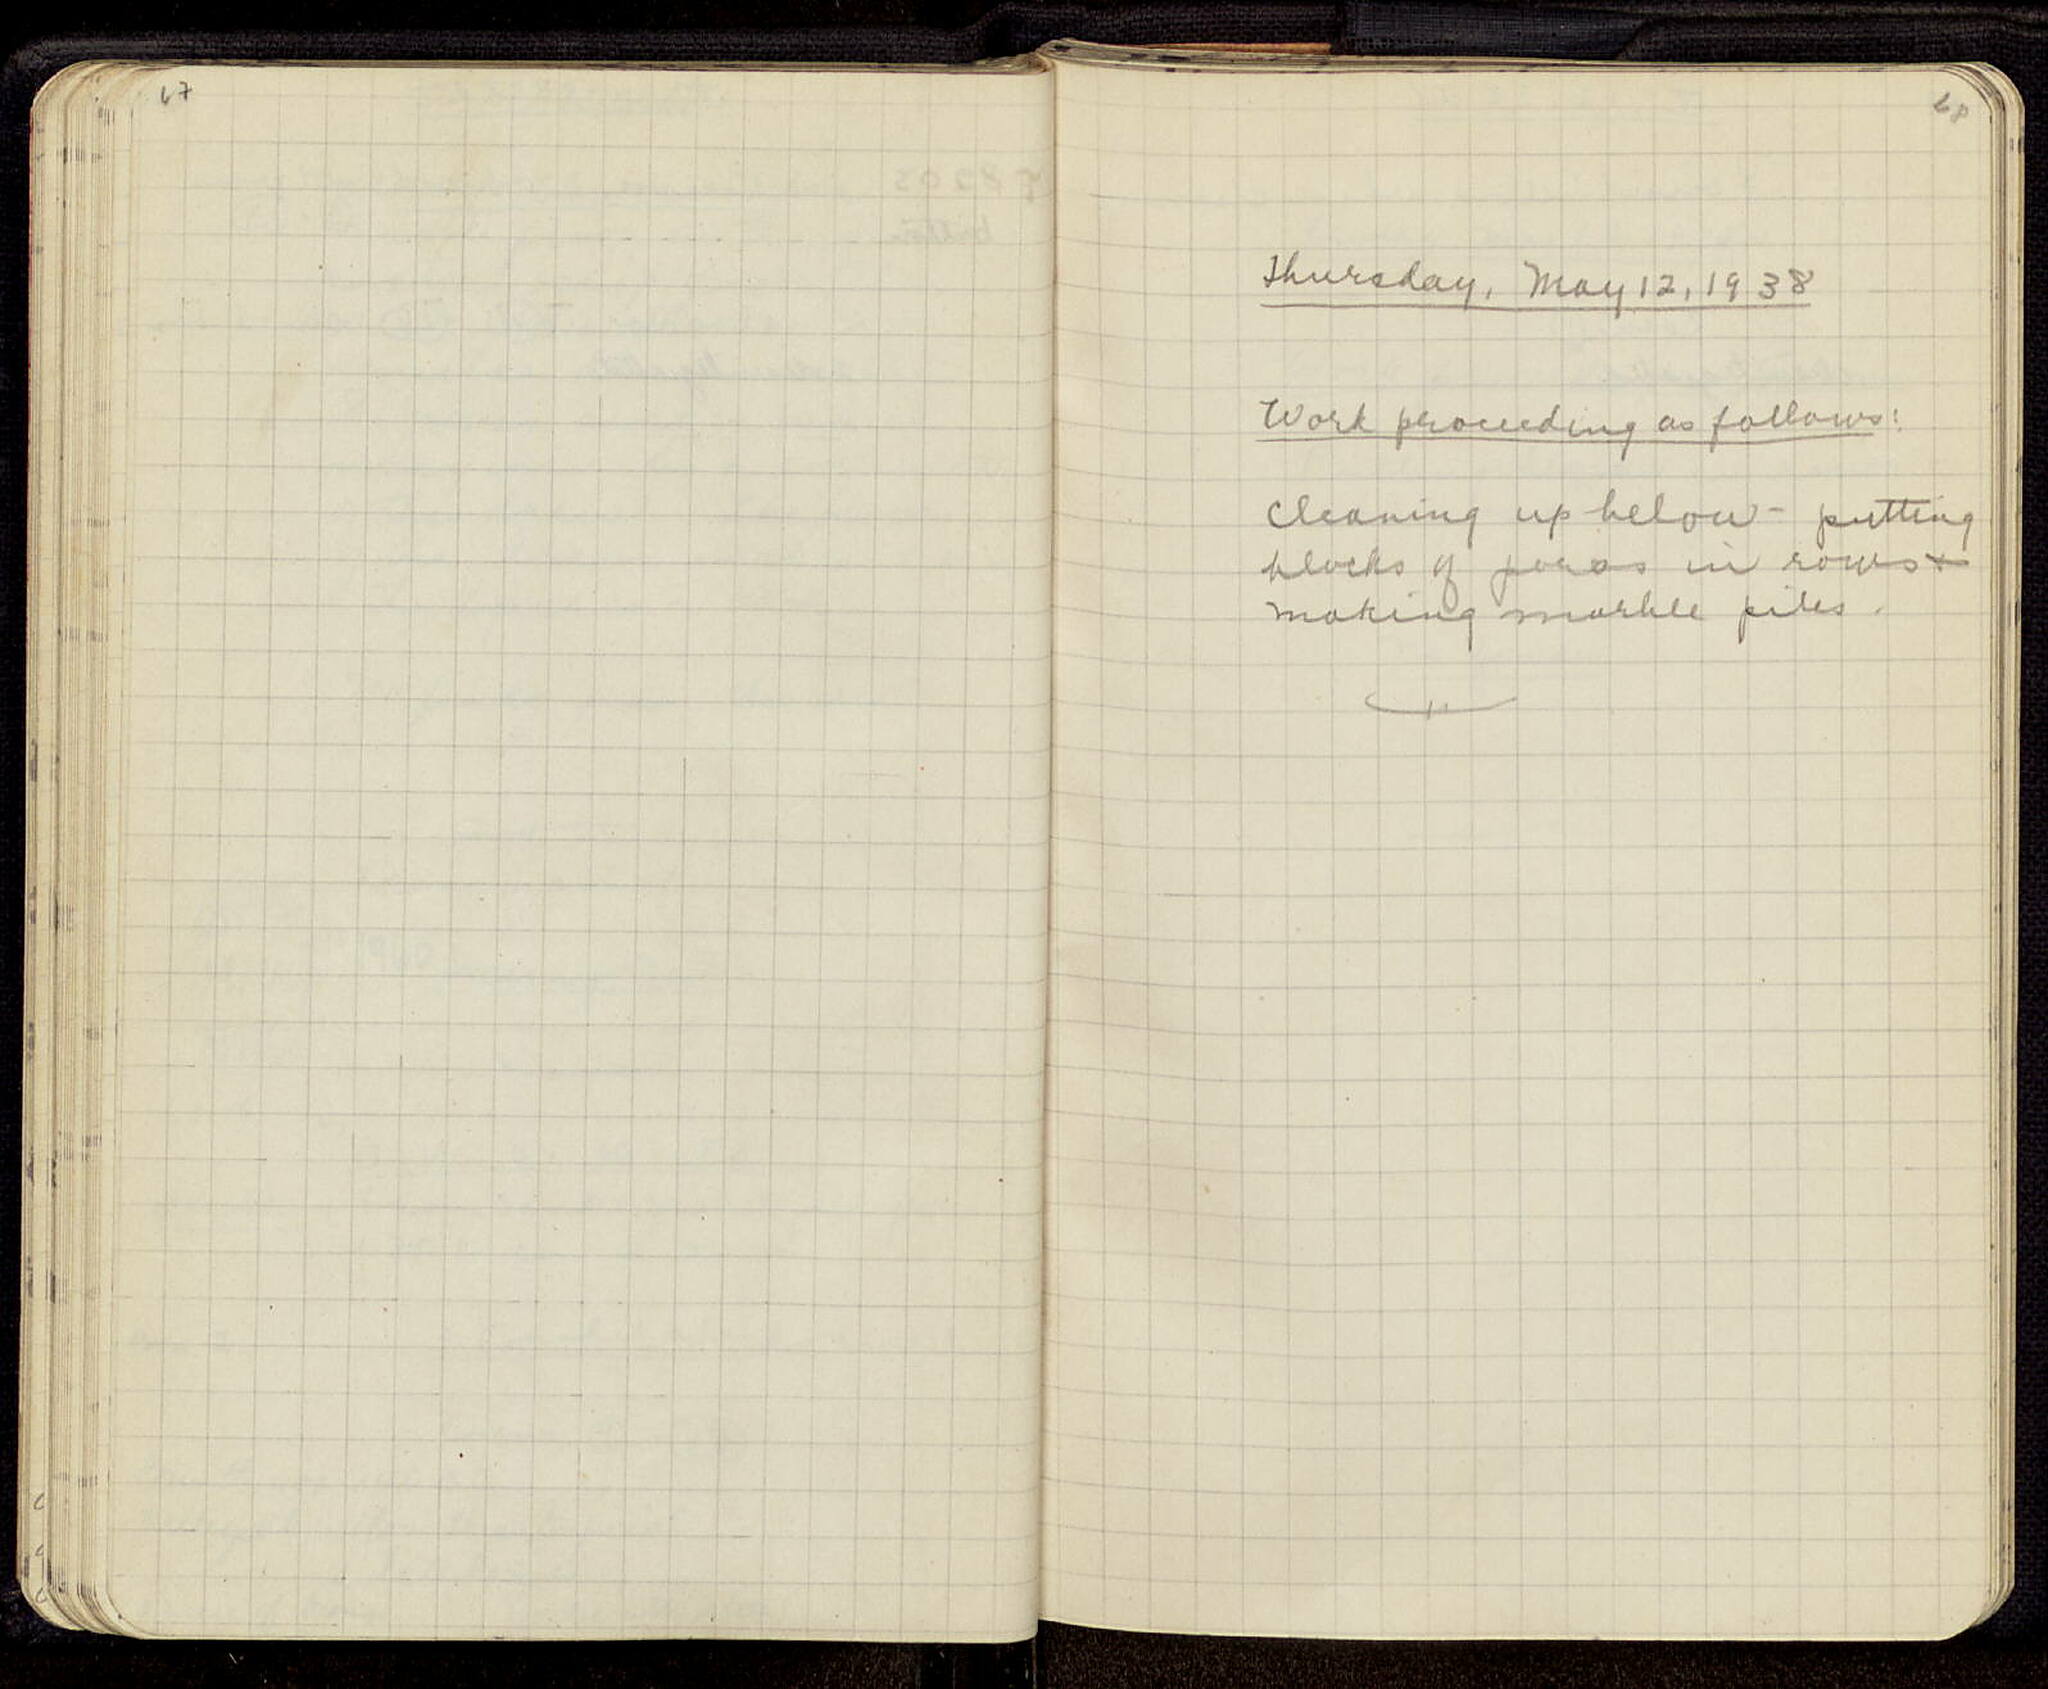 67
68
Thursday, May 12, 1938
Work proceeding as follows:
Cleaning up below - putting
blocks of poros in rows +
making marble piles.